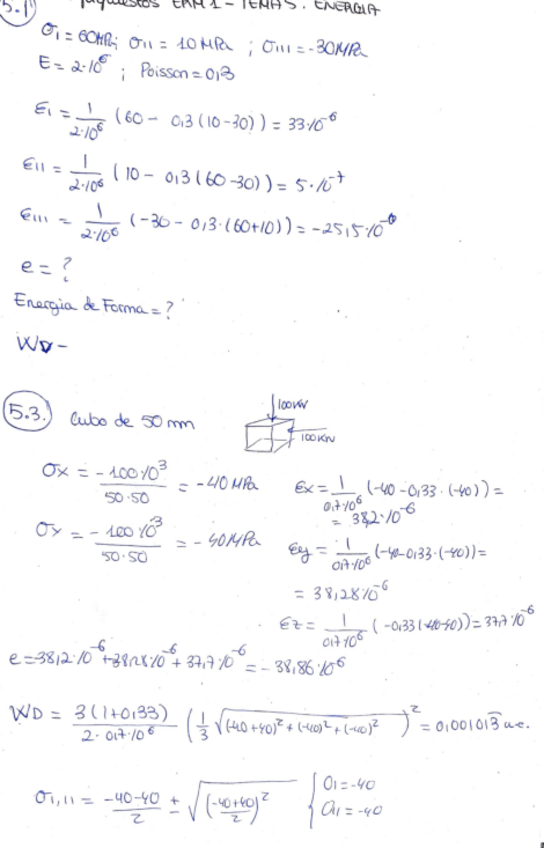 5.1
ERM 1 - TEMA 5. ENERGIA
σI = 60MPa; σII = 10 MPa ; σIII = -30MPa
E = 2·10⁶ ; Poisson = 0,3
εI = 1/2·10⁶ (60 - 0,3(10-30)) = 33·10⁻⁶
εII = 1/2·10⁶ (10 - 0,3(60-30)) = 5·10⁻⁷
εIII = 1/2·10⁶ (-30 - 0,3·(60+10)) = -25,5·10⁻⁶
e = ?
Energia de Forma = ?
WD -
5.3. Cubo de 50 mm
100KN
100KN
σx = -100·10³/50·50 = -40 MPa
εx = 1/0,7·10⁶ (-40 - 0,33·(-40)) =
= 38,2·10⁻⁶
σy = -100·10³/50·50 = -40MPa
εy = 1/0,7·10⁶ (-40-0,33·(-40)) =
= 38,28·10⁻⁶
εz = 1/0,7·10⁶ (-0,33(-40-40)) = 37,7·10⁻⁶
e = 38,2·10⁻⁶ + 38,28·10⁻⁶ + 37,7·10⁻⁶ = -38,86·10⁻⁶
WD = 3(1+0,33)/2·0,7·10⁶ (1/3 √(-40+40)² + (-40)² + (-40)²)² = 0,001013 u.e.
σI,II = -40-40/2 ± √(-40+40/2)² { σI = -40
σII = -40